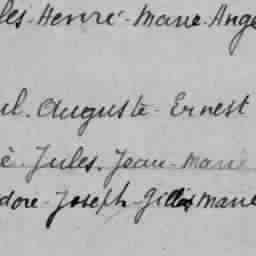 les-Henri-Marie-Ange
ul. Auguste-Ernest
è-Jules-Jean-Marie
dore-Joseph-Gilles Marie